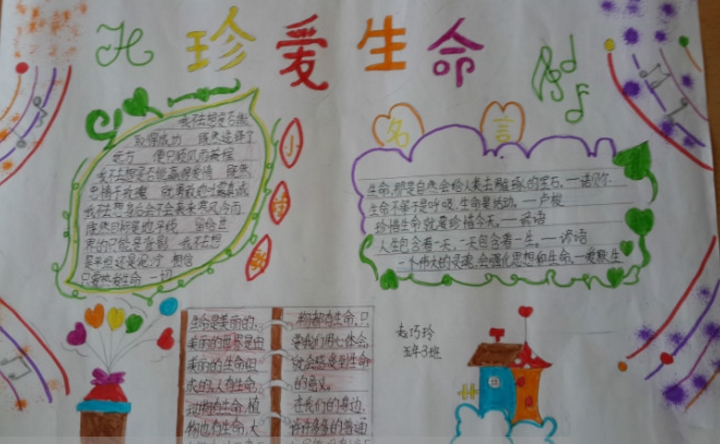 珍爱生命
我不去想是否能
够得成功 既然选择了
远方 便只顾风雨兼程
我不去想是否能赢得爱情 既然
钟情于玫瑰 就勇敢地吐露真诚
我不去想身后会不会袭来寒风冷雨
既然目标是地平线 留给世
界的只能是背影 我不去想
未来是 相信
只要热爱生命 一切
小
诗
歌
名言
生命,那是自然会给人类去雕琢的宝石。—诺贝尔
生命不等于是呼吸,生命是活动。—卢梭
珍惜生命就要珍惜今天。—谚语
人生包含着一天,一天包含着一生。—谚语
一个伟大的灵魂,会强化思想和生命。—爱默生
生命是美丽的,
美丽的世界是由
美丽的生命组
成的,人有生命,
动物有生命,植
物也有生命,大
物都有生命,只
要我们用心体会,
就会感受到生命
的意义。
在我们的身边,
有许多的普通
赵巧玲
五年3班